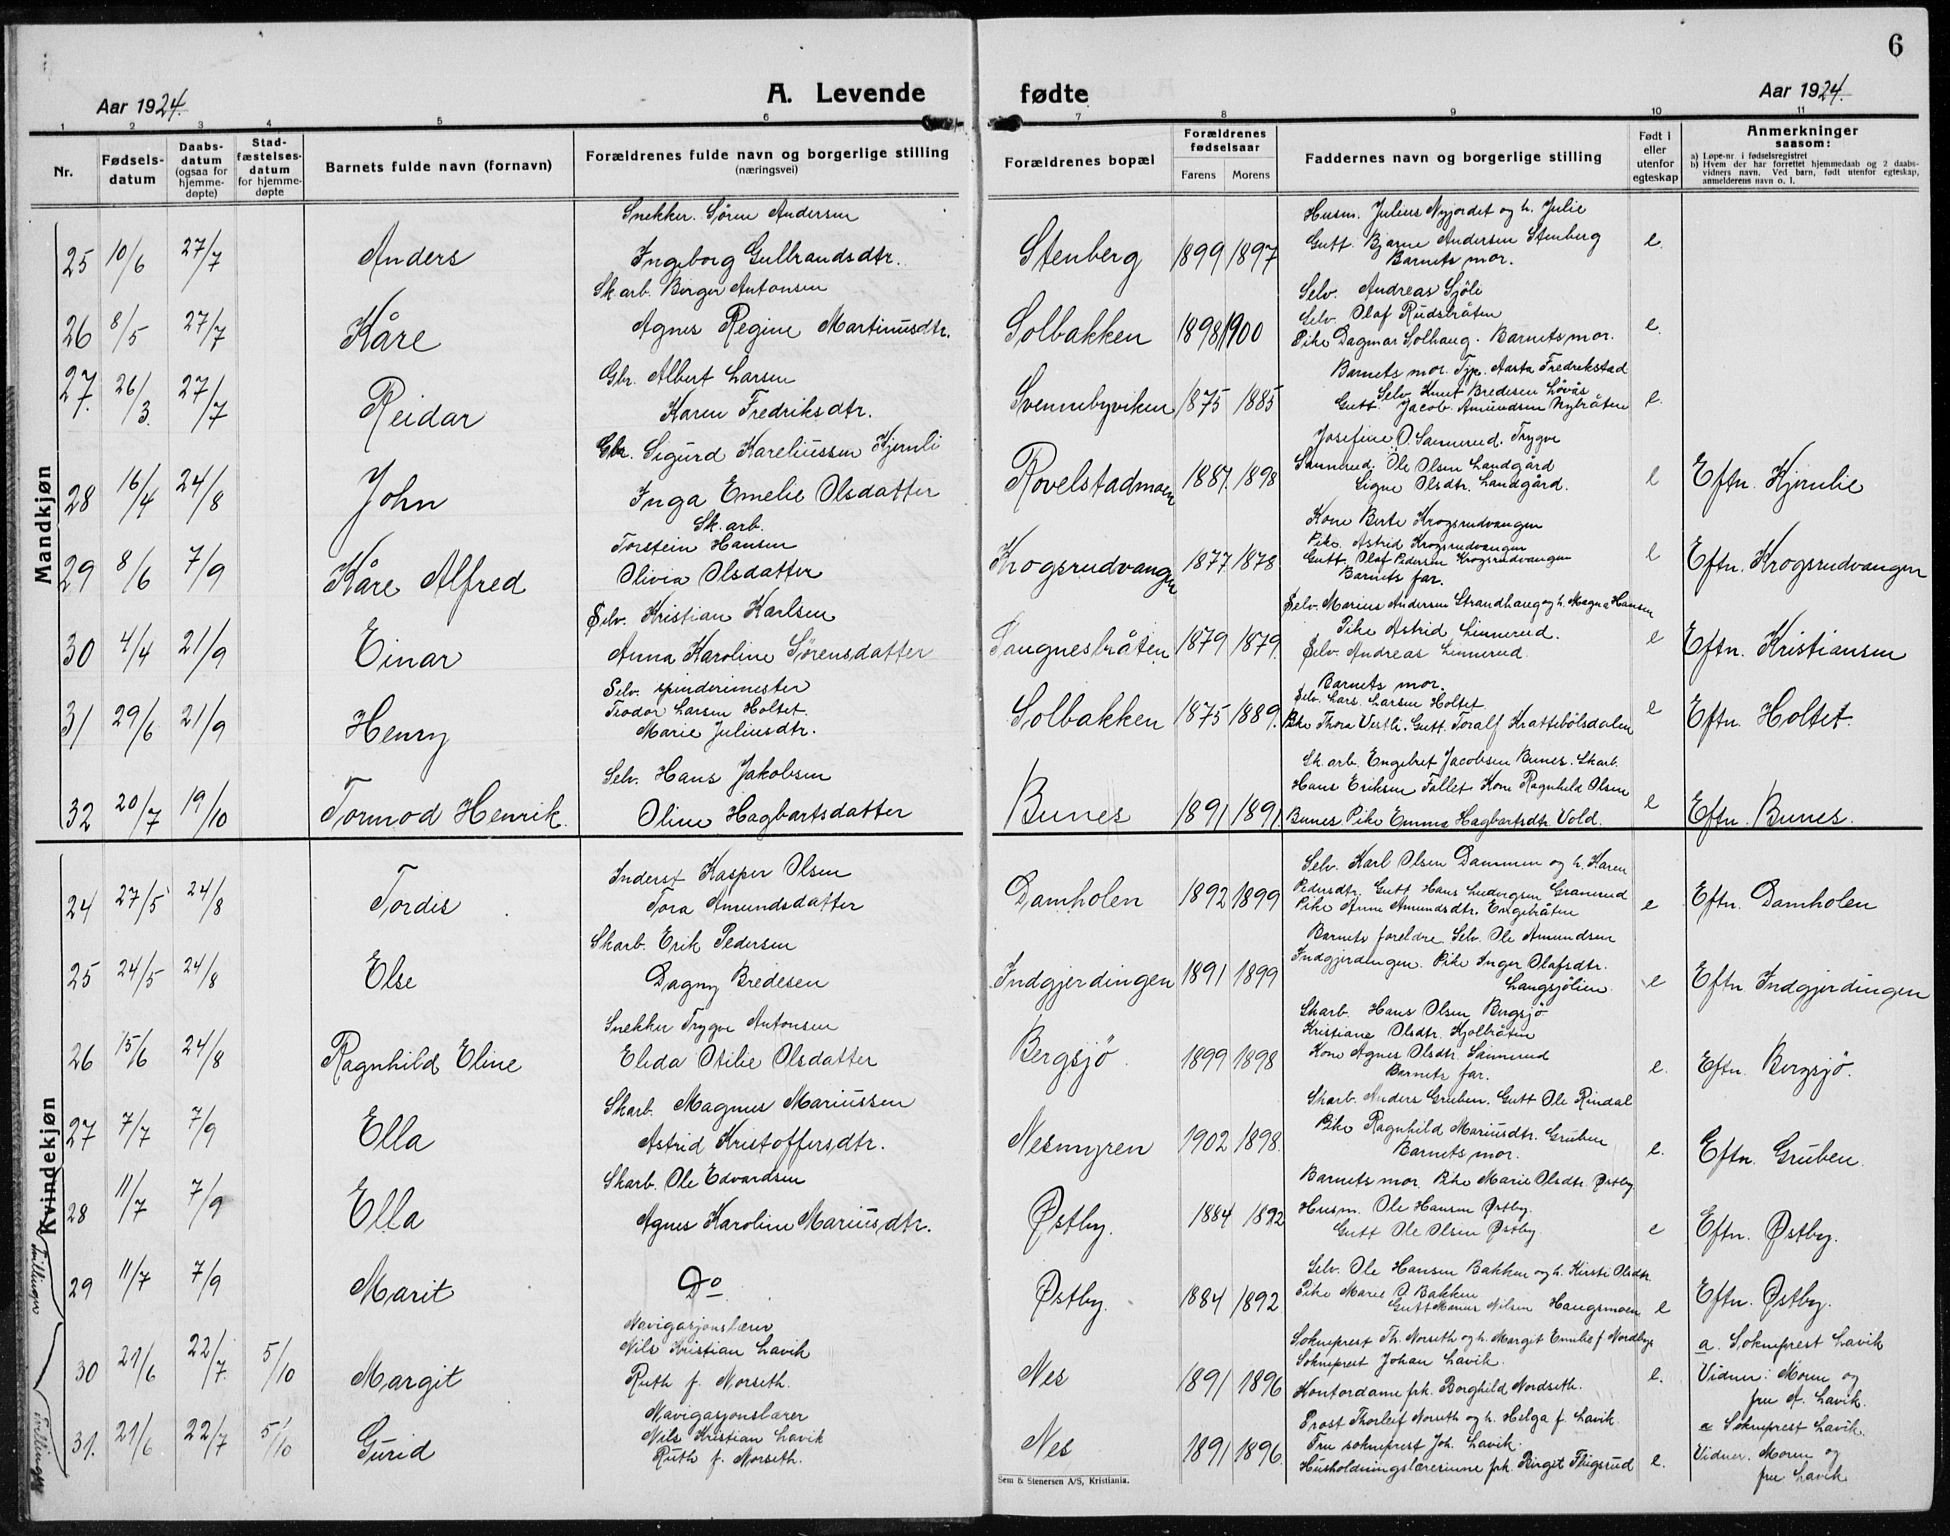 6
Aar 1924.
A. Levende
fødte
Aar 1924.
1 2 3 4 5 6 7 8 9 10 11
Nr.
Fødsels-
datum
Daabs-
datum
(ogsaa for
hjemme-
døpte)
Stad-
fæstelses-
datum
for hjemme-
døpte
Barnets fulde navn (fornavn)
Forældrenes fulde navn og borgerlige stilling
(næringsvei)
Forældrenes bopæl
Forældrenes
fødselsaar
Farens Morens
Faddernes navn og borgerlige stilling
Født i
eller
utenfor
egteskap
Anmerkninger
saasom:
a) Løpe-nr. i fødselsregistret
b) Hvem der har forrettet hjemmedaab og 2 daabs-
vidners navn. Ved barn, født utenfor egteskap,
anmelderens navn o. l.
Mandkjøn
25 10/6 27/7 Anders
Snekker. Søren Andersen
Ingeborg Gulbrandsdtr.
Stenberg 1899 1897
Husm. Julius Nyjordet og h. Julie
Gutt. Bjarne Andersen Stenberg
Barnets mor.
e.
26 8/5 27/7 Kåre
Sk.arb. Berger Antonsen
Agnes Regine Martinusdtr.
Solbakken 1898 1900
Selv. Andreas Sjöli
Selv. Olaf Rudsbråten
Pike Dagmar Solhaug. Barnets mor.
e.
27. 26/3. 27/7 Reidar
Gbr. Albert Larsen
Karen Fredriksdtr.
Svennebyviken 1875 1885
Barnets mor. Tjp. Aasta Fredrikstad
Selv. Knut Bredesen Lövås
Gutt. Jacob Amundsen Nybråten
e.
28 16/4 24/8 John
Gbr. Sigurd Kareliussen Kjernli
Inga Emelie Olsdatter
Rovelstadmoen 1887. 1898
Josefine O. Sannerud. Trygve
Sannerud. Ole Olsen Landgård
Signe Olsdtr. Landgård.
e Eftn. Kjernlie
29 8/6 7/9 Kåre Alfred
Sk.arb.
Torstein Hansen
Olivia Olsdatter
Krogsrudvangen 1877 1878
Kone Berte Krogsrudvangen
Pike. Astrid Krogsrudvangen
Gutt. Olaf Pedersen Krogsrudvangen
Barnets far.
e Eftn. Krogsrudvangen
30 4/4 21/9 Einar
Selv. Kristian Karlsen
Anna Karoline Sørensdatter
Saugnesbråten 1879 1879.
Selv. Marius Andersen Strandhaug og h. Magna Hansen
Pike Astrid Linnerud.
Selv. Andreas Linnerud.
e Eftn. Kristiansen
31 29/6 21/9 Henry
Selv. spinderimester
Teodor Larsen Holtet.
Marie Juliusdtr.
Solbakken 1875 1889.
Barnets mor.
Selv. Lars Larsen Holtet
Pike Thora Vestli. Gutt. Toralf Krattebölsdalen
e Eftn. Holtet.
32 20/7 19/10 Tormod Henrik.
Selv. Hans Jakobsen
Oline Hagbartsdatter
Bunes 1891 1891.
Sk.arb. Engebret Jacobsen Bunes. Skarb.
Hans Eriksen Follet Kone Ragnhild Olsen
Bunes. Pike Emma Hagbartsdtr. Vold.
e Eftn. Bunes.
Kvindekjøn
24 27/5 24/8 Tordis
Inderst Kasper Olsen
Tora Amundsdatter
Damholen 1892 1899
Selv. Karl Olsen Dammen og h. Karen
Pedersdtr. Gutt Hans Ludvigsen Granerud
Pike Anne Amundsdtr. Engebråten
e Eftn. Damholen
25 24/5 24/8 Else
Skarb. Erik Pedersen
Dagny Bredesen
Indgjerdingen 1891 1899
Barnets foreldre. Selv. Ole Amundsen
Indgjerdingen. Pike Inger Olafsdtr.
Langsjölien.
e Eftn Indgjerdingen
26 15/6 24/8 Ragnhild Eline
Snekker Trygve Antonsen
Elida Otilie Olsdatter
Bergsjö. 1899 1898
Skarb. Hans Olsen Bergsjö
Kristiane Olsdtr. Kjolbråten
Kone Agnes Olsdtr. Sannerud
Barnets far.
e. Eftn. Bergsjö.
27 7/7 7/9 Ella
Skarb. Magnus Mariussen
Astrid Kristoffersdtr.
Nesmyren 1902 1898.
Skarb. Anders Gruben. Gutt Ole Rindal
Pike Ragnhild Mariusdtr. Gruben
Barnets mor.
e. Eftn. Gruben.
28 11/7 7/9 Ella
Skarb. Ole Edvardsen
Agnes Karoline Mariusdtr.
Østby. 1884 1892
Barnets mor. Pike Marie Olsdtr. Østby
Husm. Ole Hansen Østby.
Gutt Ole Olsen Østby.
e Eftn. Østby.
Tvillinger
29 11/7 7/9 Marit
Do
Østby. 1884 1892
Selv. Ole Hansen Bakken og h. Kirsti Olsdtr.
Pike Marie O Bakken
Gutt Marius Nilsen Haugsmoen
e Eftn. Østby.
30 21/6 22/7. 5/10 Margit
Navigasjonslærer
Nils Kristian Lavik
Ruth f. Norseth.
Nes 1891 1896
Sokneprest Th. Norseth og h. Margit Emilie f Nordbye
Sokneprest Johan Lavik.
Kontordame frk. Borghild Nordseth.
e.
a. Sokneprest Lavik
Vidner: Moren og
fru A. Lavik.
Tvillinger
31. 21/6 22/7 5/10 Gurid
Navigasjonslærer
Nils Kristian Lavik
Ruth f. Norseth.
Nes 1891 1896.
Prost Thorleif Norseth og h. Helga f. Lavik
Fru sokneprest Joh. Lavik.
Husholdningslærerinne frk. Birgit Flugsrud
e.
a Sokneprest Lavik.
Vidner. Moren og
fru Lavik
Sem & Stenersen A/S, Kristiania.